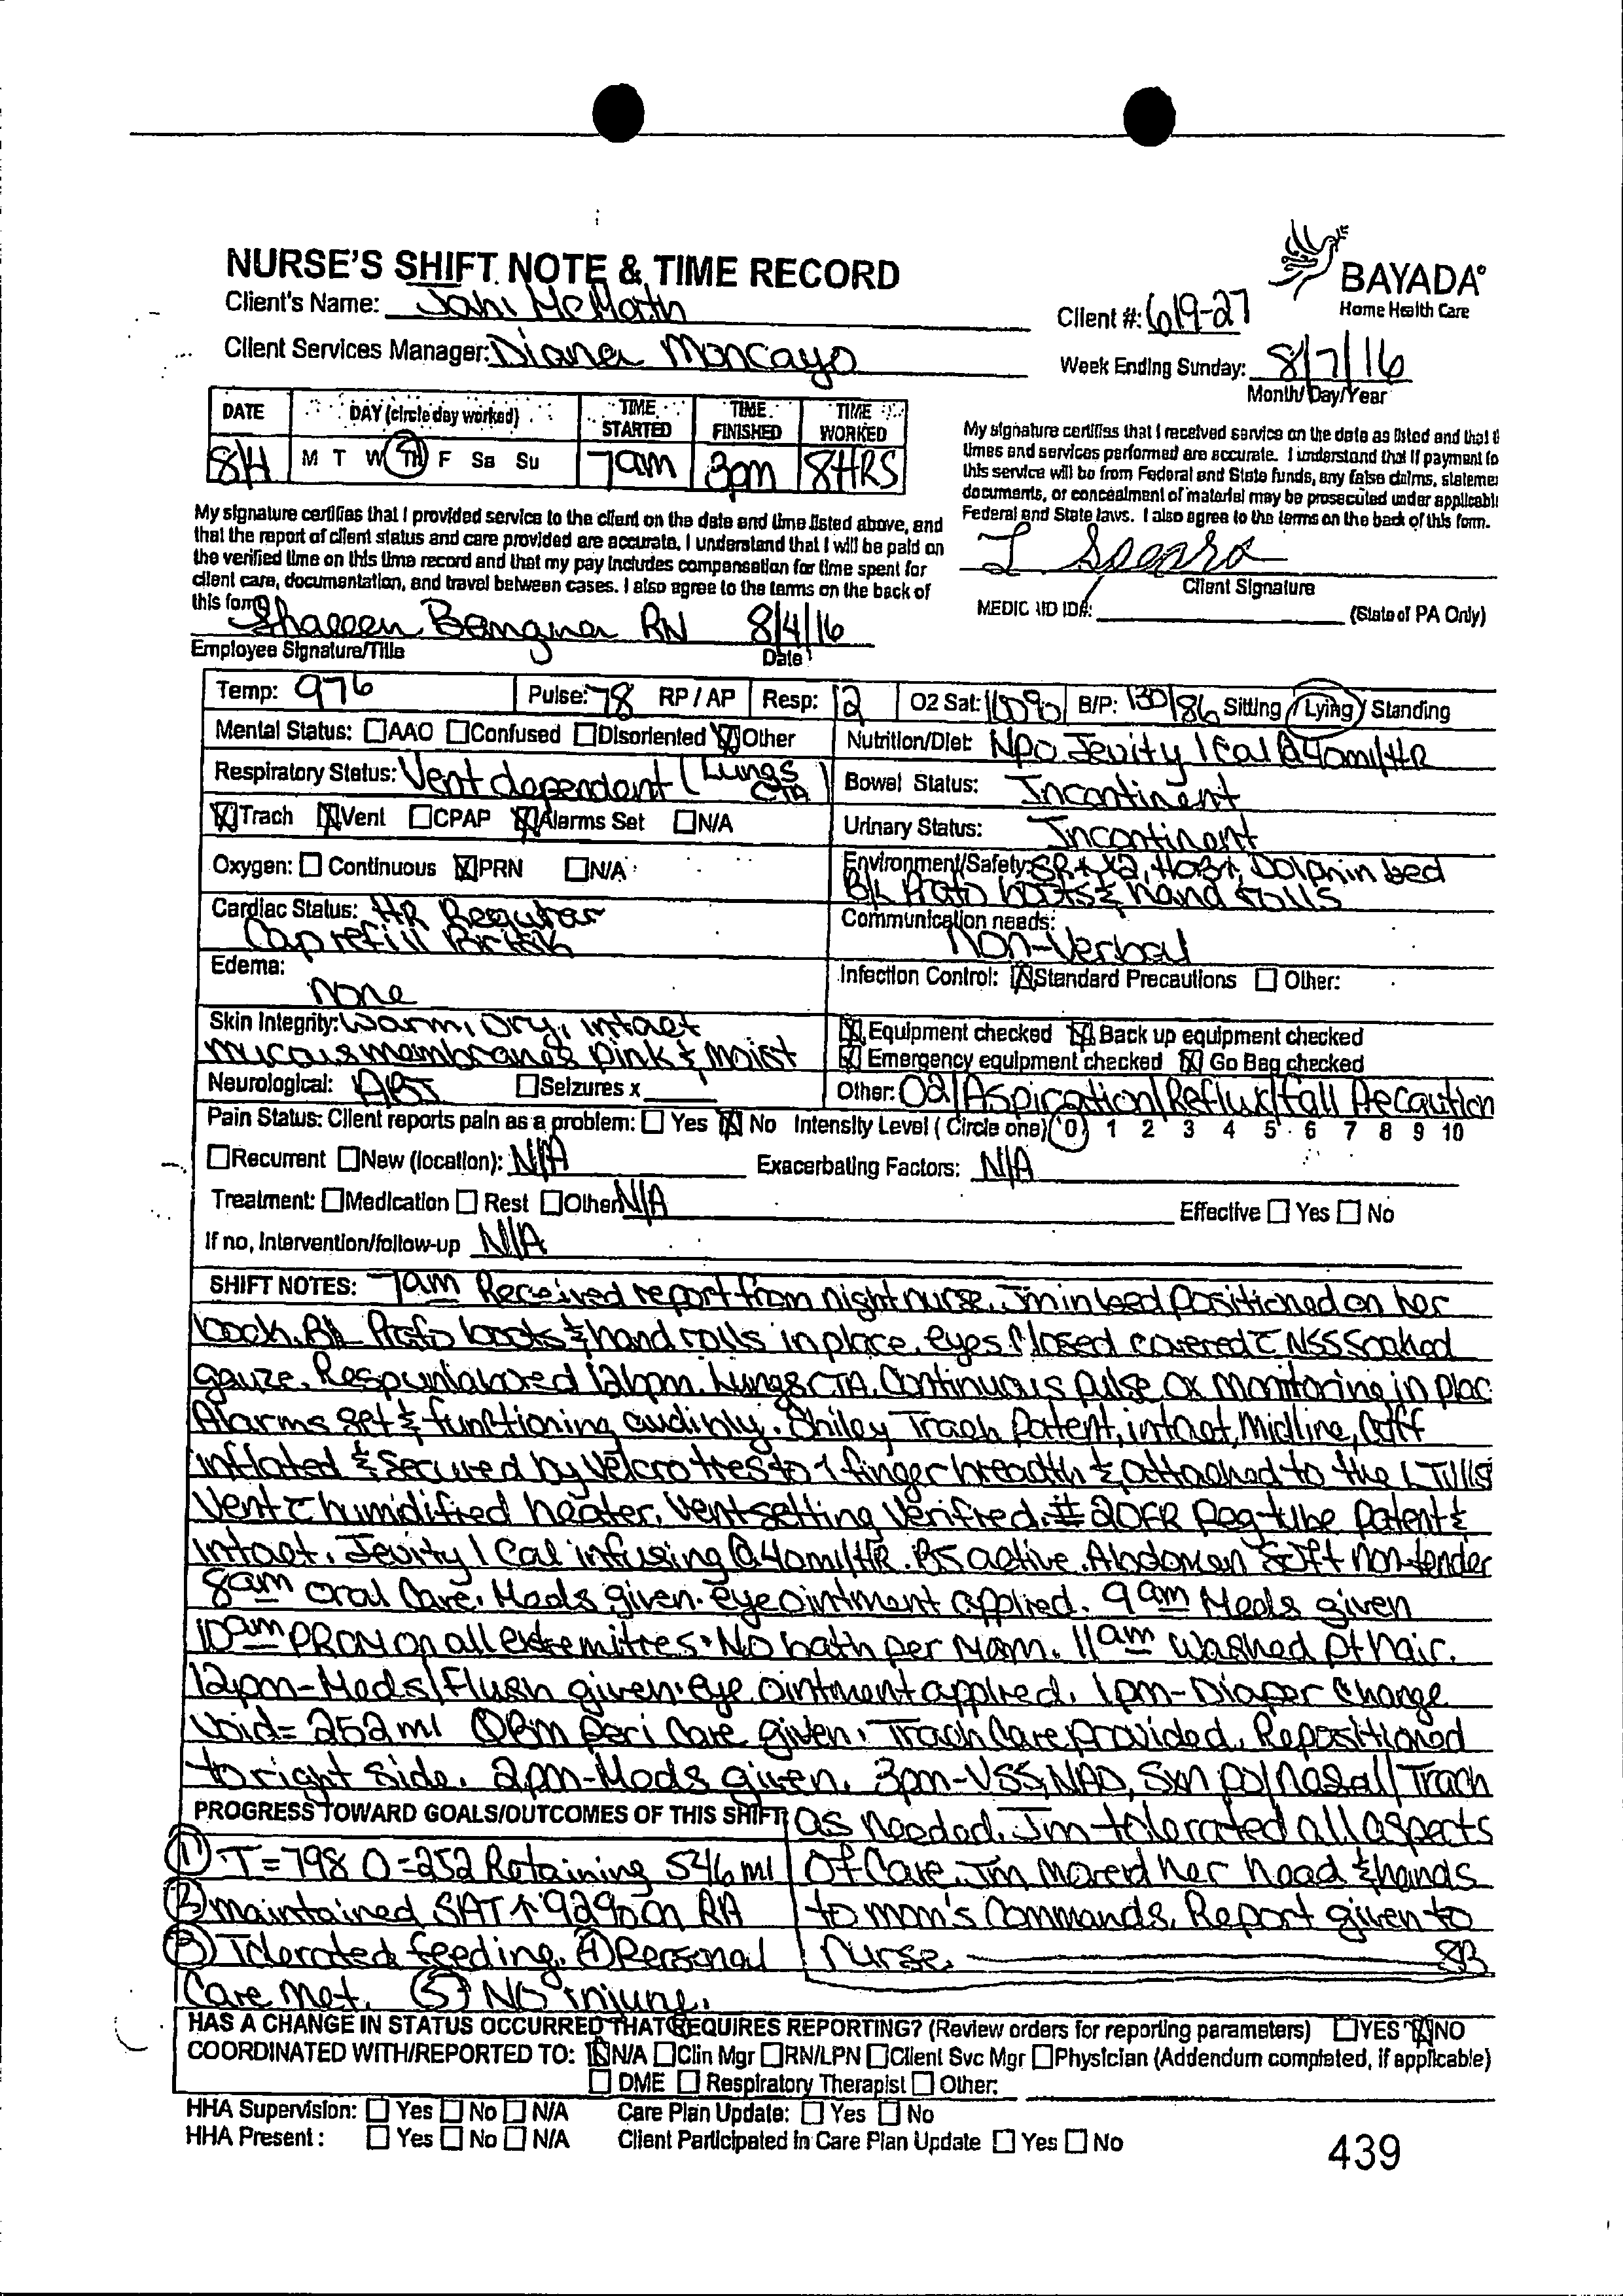 NURSE'S SHIFT NOTE & TIME RECORD
BAYADA
Home Health Care
Client's Name: Jahi McMath
Client #: 619-27
Client Services Manager: Diana Moncayo
Week Ending Sunday: 8/7/16
Month/Day/Year
DATE DAY (circle day worked) TIME STARTED TIME FINISHED TIME WORKED
8/4 M T W Th F Sa Su 7am 3pm 8HRS
My signature certifies that I received service on the date as listed and that
times and services performed are accurate. I understand that if payment fo
this service will be from Federal and State funds, any false claims, stateme
documents, or concealment of material may be prosecuted under applicabl
Federal and State laws. I also agree to the terms on the back of this form.
Client Signature
MEDIC AID ID#: (State of PA Only)
My signature certifies that I provided service to the client on the date and time listed above, and
that the report of client status and care provided are accurate. I understand that I will be paid on
the verified time on this time record and that my pay includes compensation for time spent for
client care, documentation, and travel between cases. I also agree to the terms on the back of
this form.
RN 8/4/16
Employee Signature/Title Date
Temp: 976 Pulse: 78 RP / AP Resp: 12 O2 Sat: 100% B/P: 130/86 Sitting Lying Standing
Mental Status: AAO Confused Disoriented Other
Nutrition/Diet: NPO Jevity 1 Cal @ 40ml/HR
Respiratory Status: Vent dependent (Lungs CTA)
Bowel Status: Incontinent
Trach Vent CPAP Alarms Set N/A
Urinary Status: Incontinent
Oxygen: Continuous PRN N/A
Environment/Safety: SR↑ X2, HOB↑, Dolphin bed
B/L Prafo boots & hand rolls
Cardiac Status: HR Regular
Cap refill Brisk
Communication needs:
Non-Verbal
Edema:
None
Infection Control: Standard Precautions Other:
Skin Integrity: Warm, Dry, intact
mucous membranes pink & moist
Equipment checked Back up equipment checked
Emergency equipment checked Go Bag checked
Neurological: Seizures x
Other: O2/Aspiration/Reflux/fall Precaution
Pain Status: Client reports pain as a problem: Yes No Intensity Level ( Circle one) 0 1 2 3 4 5 6 7 8 9 10
Recurrent New (location): N/A Exacerbating Factors: N/A
Treatment: Medication Rest Other N/A Effective Yes No
If no, Intervention/follow-up N/A
SHIFT NOTES: 7am Received report from night nurse. Jm in bed positioned on her
back. B/L Prafo boots & hand rolls in place. eyes closed covered c̄ NSS Soaked
gauze. Resp unlabored 12bpm. Lungs CTA. Continuous pulse ox monitoring in plac
Alarms set & functioning audibly. Shiley Trach Patent, intact, Midline, Cuff
inflated & secured by Velcro ties to 1 fingerbreadth & attached to the LTV
Vent c̄ humidified heater. Vent setting Verified. # 20FR Peg-tube Patent &
intact. Jevity 1 Cal infusing @ 40ml/HR. BS active. Abdomen soft non-tender
8am Oral Care. Meds given. eye ointment applied. 9am Meds given
10am PROM on all extremities. No bath per Mom. 11am Washed pt hair.
12pm-Meds/Flush given. eye ointment applied. 1pm-Diaper change
Void= 252ml peri care given. Trach Care provided. Repositioned
to right side. 2pm-Meds given. 3pm-VSS, NAD, Sxn po/nasal/Trach
as needed. Jm tolerated all aspects
of Care. Jm moved her head & hands
to mom's commands. Report given to
nurse. SB
PROGRESS TOWARD GOALS/OUTCOMES OF THIS SHIFT:
① I=798 O=252 Retaining 546ml
② maintained SAT ↑ 92% on RA
③ Tolerated feeding. ④ Personal
Care met. ⑤ No injury.
HAS A CHANGE IN STATUS OCCURRED THAT REQUIRES REPORTING? (Review orders for reporting parameters) YES NO
COORDINATED WITH/REPORTED TO: N/A Clin Mgr RN/LPN Client Svc Mgr Physician (Addendum completed, if applicable)
DME Respiratory Therapist Other:
HHA Supervision: Yes No N/A Care Plan Update: Yes No
HHA Present: Yes No N/A Client Participated in Care Plan Update Yes No
439